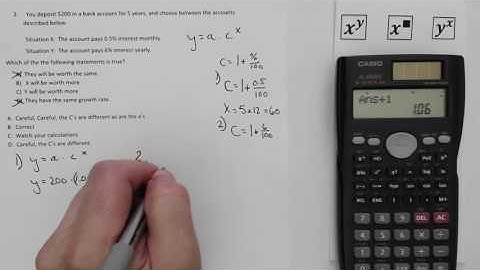 2. You deposit $200 in a bank account for 5 years, and choose between the accounts
described below.
Situation X: The account pays 0.5% interest monthly.
Situation Y: The account pays 6% interest yearly.
Which of the following statements is true?
They will be worth the same.
B) X will be worth more
C) Y will be worth more
They have the same growth rate.
A: Careful. Careful, the C's are different as are the a's
B: Correct
C: Watch your calculations
D: Careful, the C's are different
y = a · c^x
C = 1 + %/100
1) C = 1 + 0.5/100
X = 5×12 = 60
2) C = 1 + 6/100
1) y = a · c^x
y = 200 · (1.0
2
x^y
x^■
y^x
CASIO
Ans+1
1.06
7 8 9 DEL AC
4 5 6
1 2 3